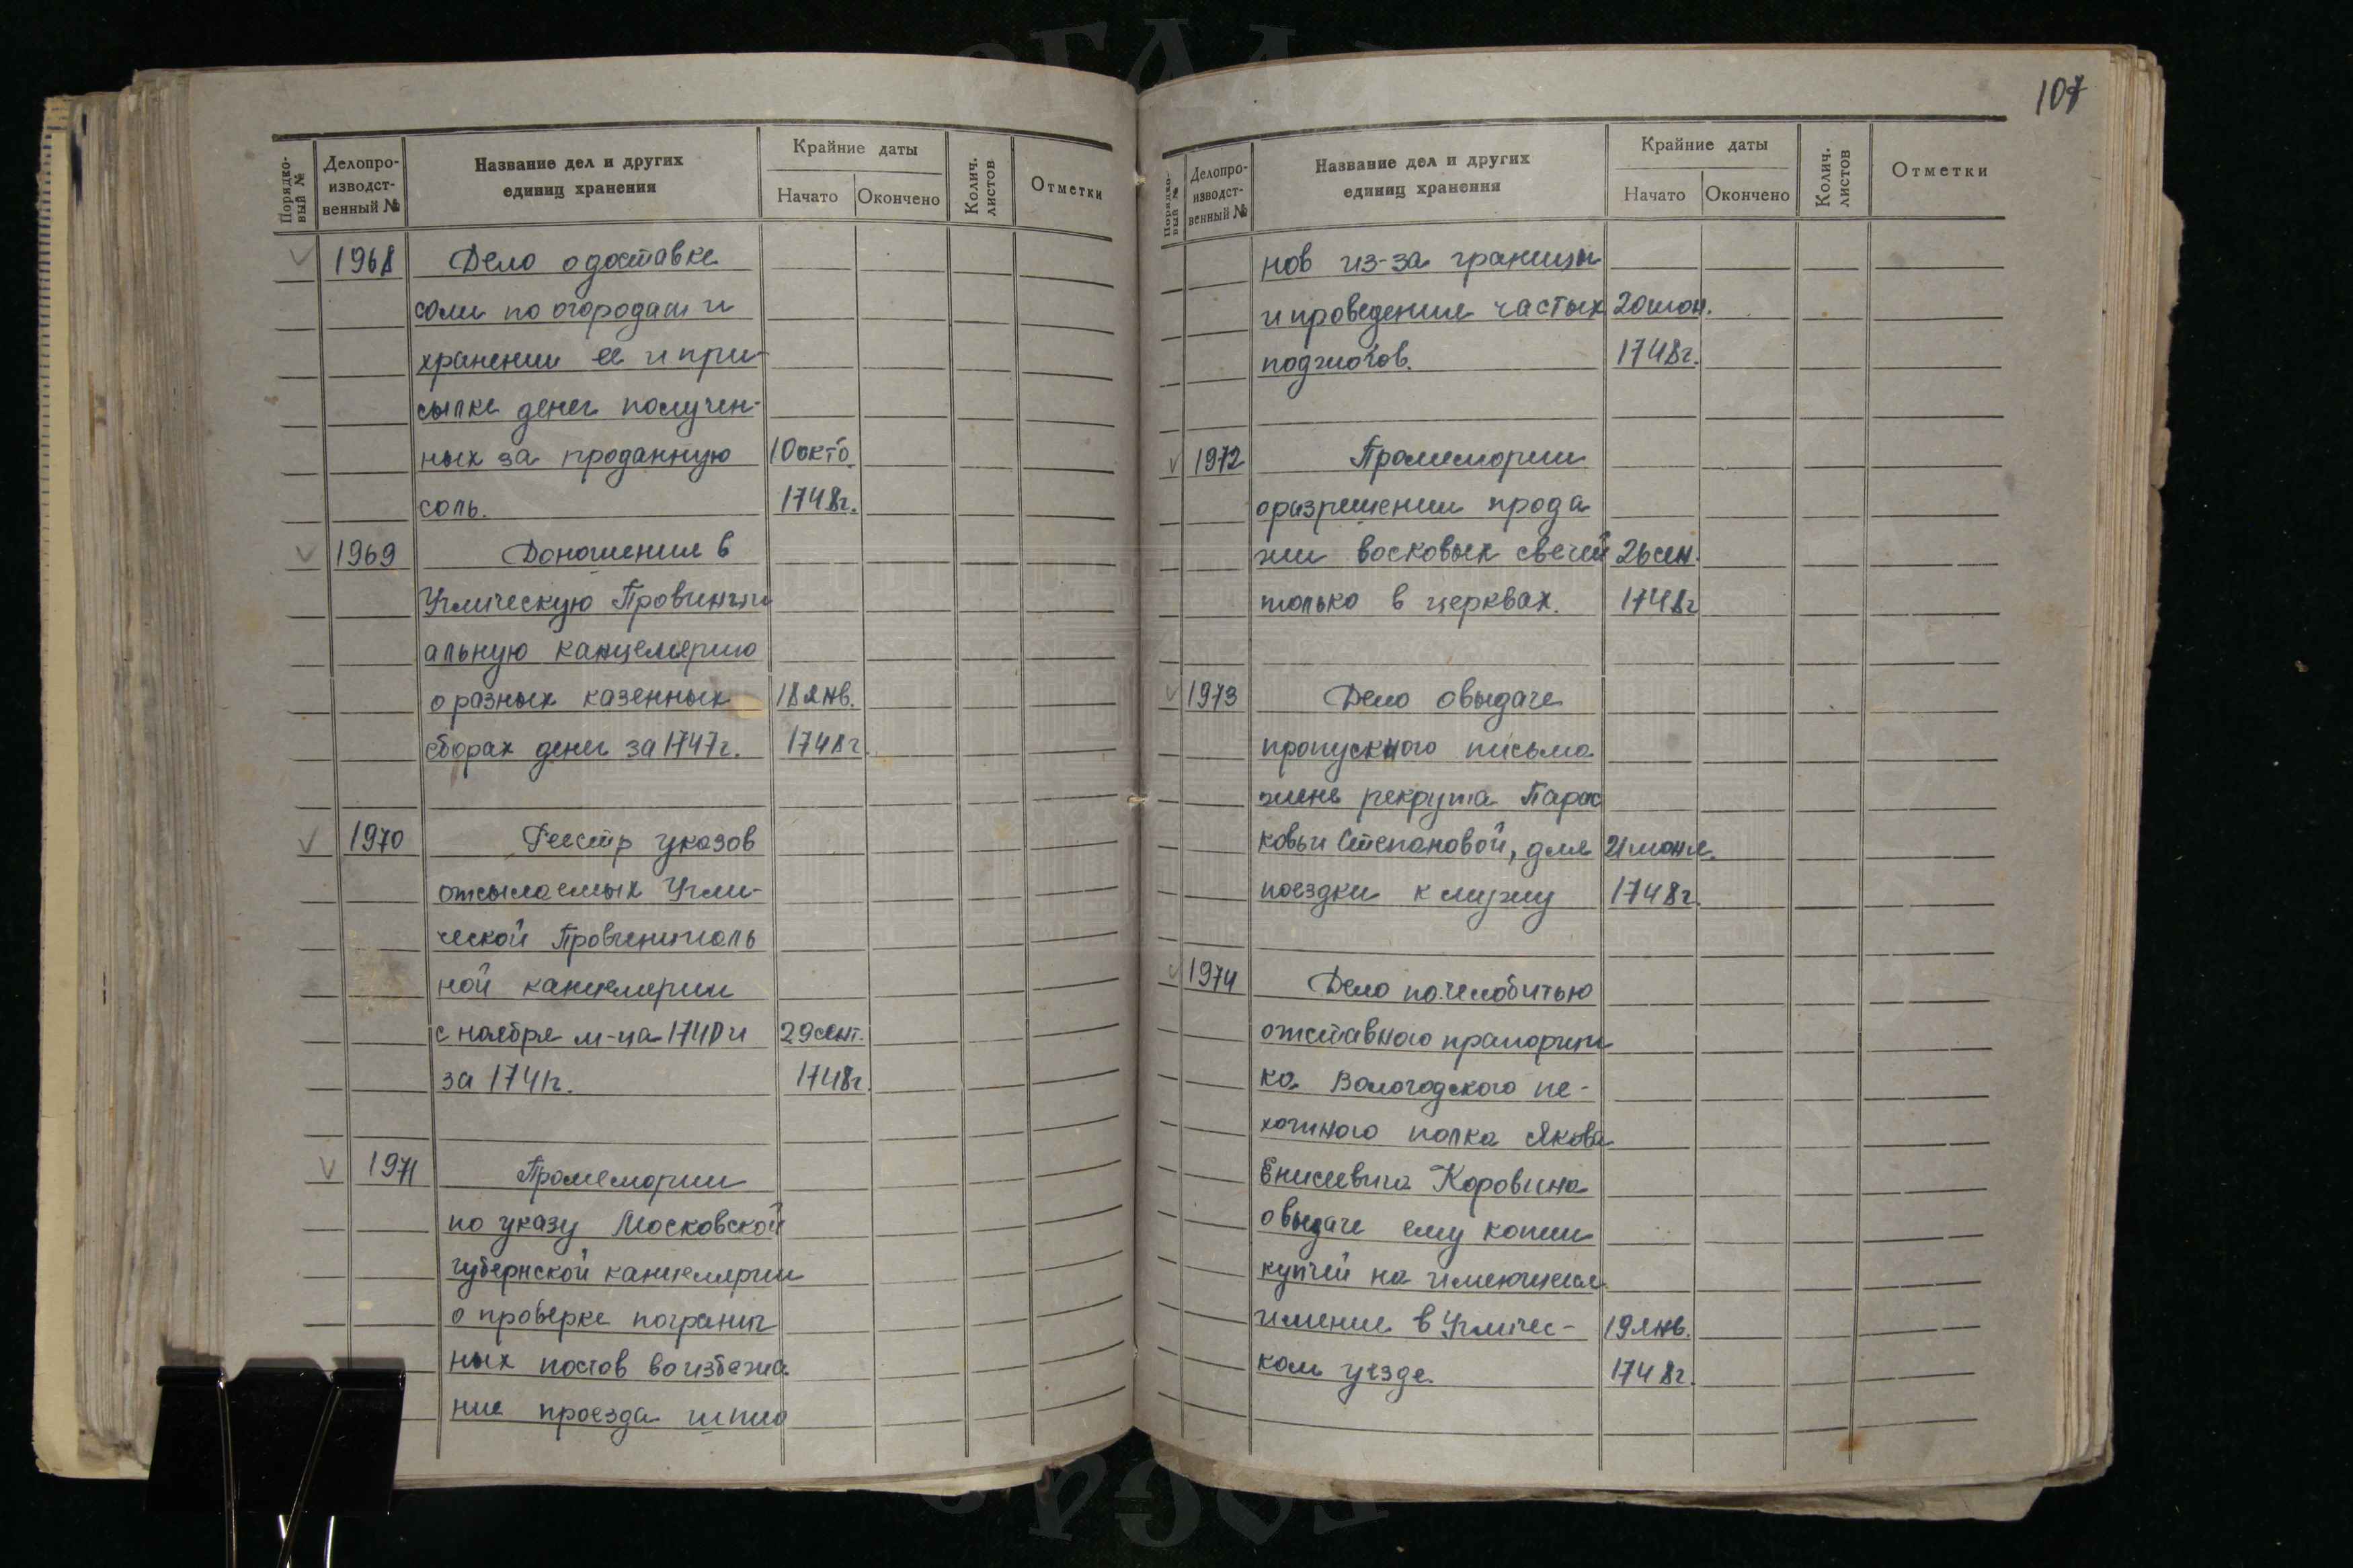 107
Порядко-
вый №
Делопро-
изводст-
венный №
Название дел и других
единиц хранения
Крайние даты
Начато
Окончено
Колич.
листов
Отметки
1968 Дело о доставке
соли по огородам и
хранении ее и при-
сылке денег получен-
ных за проданную 10 окт.
соль. 1748г.
1969 Доношения в
Угличскую Провинци
альную канцелярию
о разных казенных 18 янв.
сборах денег за 1747г. 1748г.
1970 Реестр указов
отсылаемых Угли-
ческой Провинциаль
ной канцелярии
с ноября м-ца 1740 и 29 сент.
за 1741г. 1748г.
1971 Промемории
по указу Московской
губернской канцелярии
о проверке погранич
ных постов во избежа
ние проезда шпио
Порядко-
вый №
Делопро-
изводст-
венный №
Название дел и других
единиц хранения
Крайние даты
Начато
Окончено
Колич.
листов
Отметки
нов из-за границы
и проведения частых 20 июн.
поджогов. 1748г.
1972 Промемории
о разрешении прода
жи восковых свечей 26 сен.
только в церквах. 1748г
1973 Дело о выдаче
пропускного письма
жене рекрута Парас
ковьи Степановой, для 21 июня.
поездки к мужу 1748г.
1974 Дело по челобитью
отставного прапорщи
ка Вологодского пе-
хотного полка Якова
Енисеевича Коровина
о выдаче ему копии
купчей на имеющееся
имение в Угличес- 19 янв.
ком уезде. 1748г.